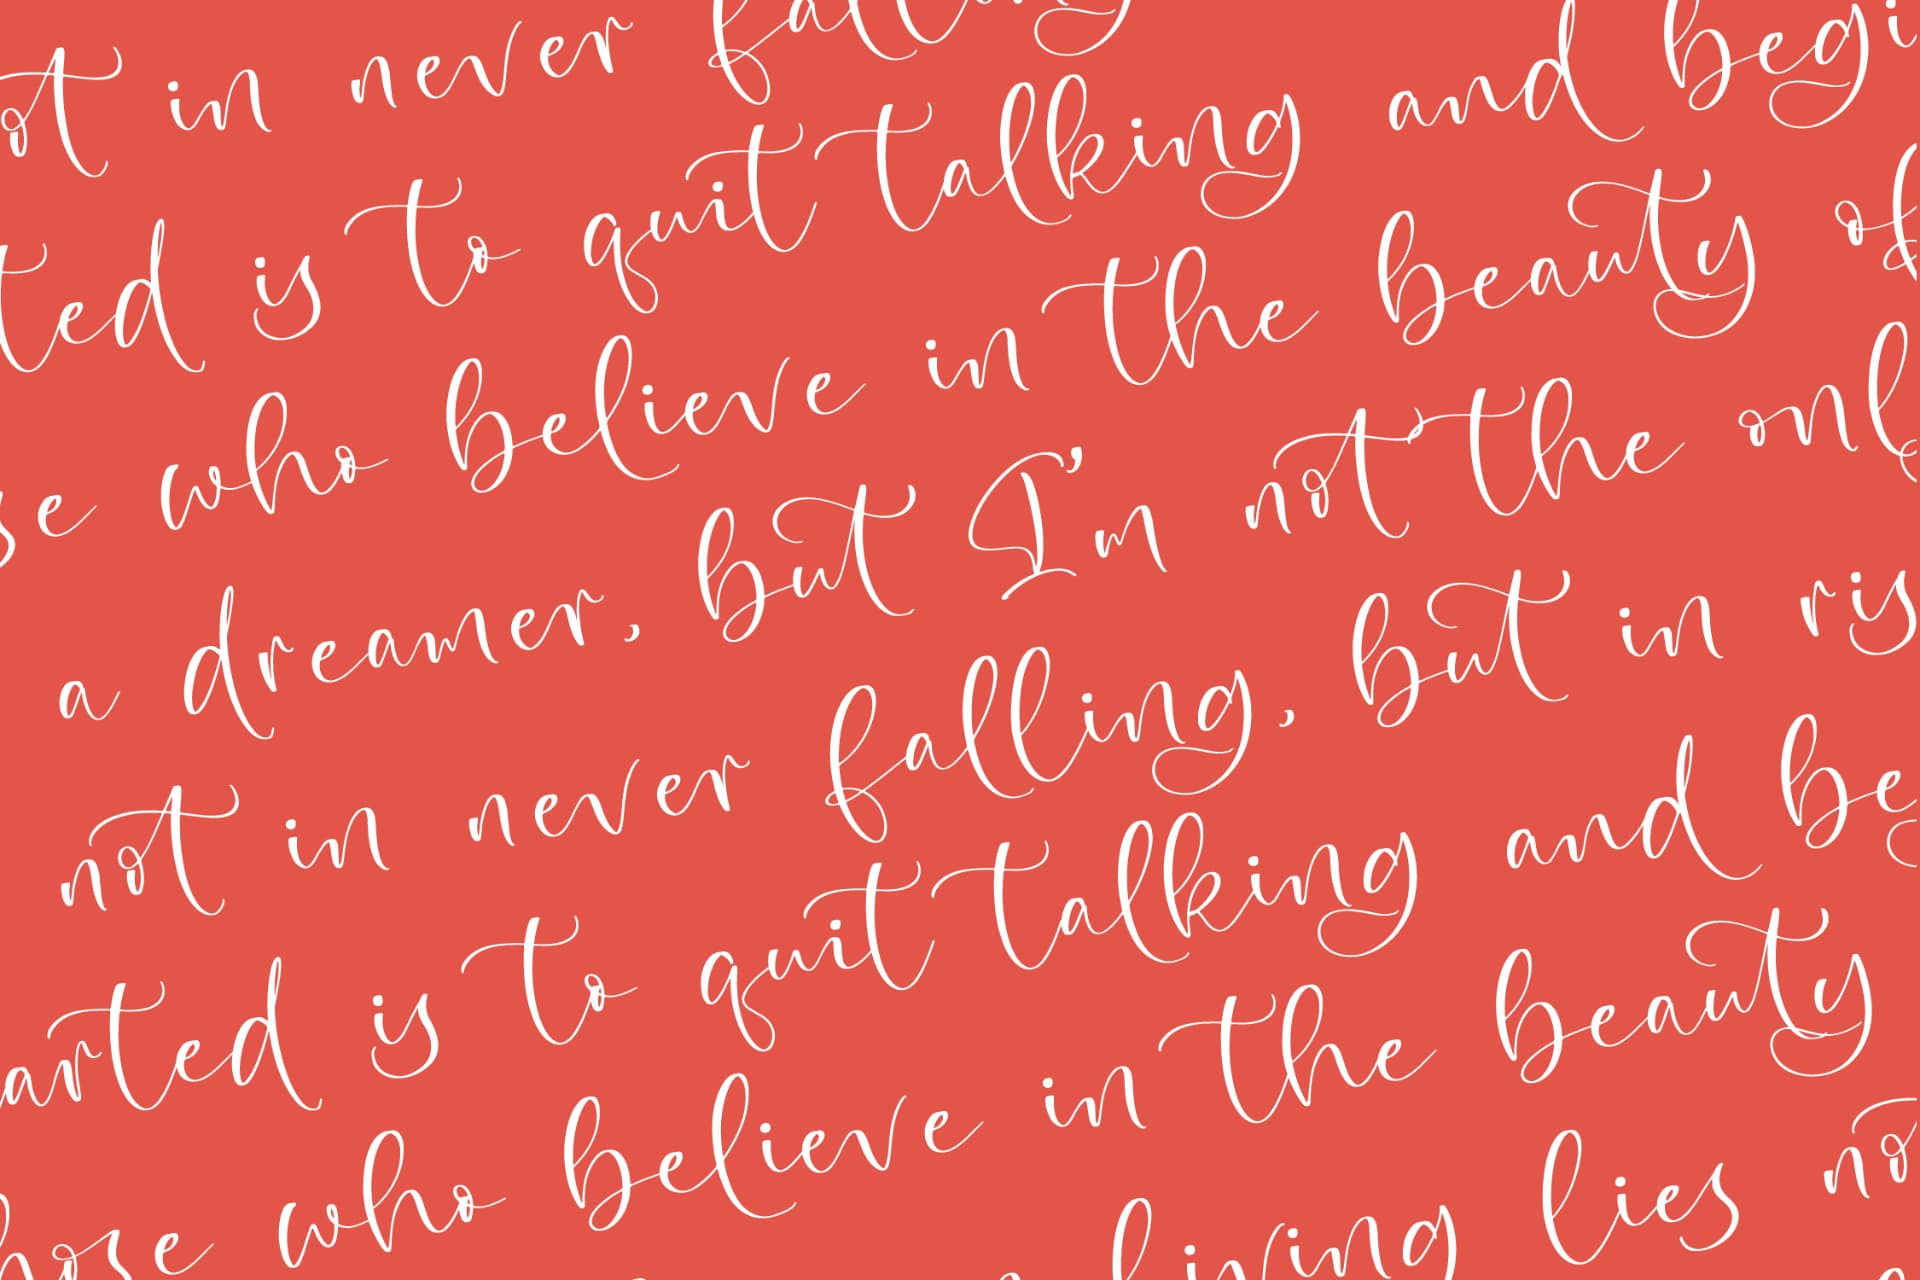 ot in never falling
ted is to quit talking and begi
se who believe in the beauty of
a dreamer, but I'm not the onl
not in never falling, but in ris
arted is to quit talking and be
hose who believe in the beauty
living lies no